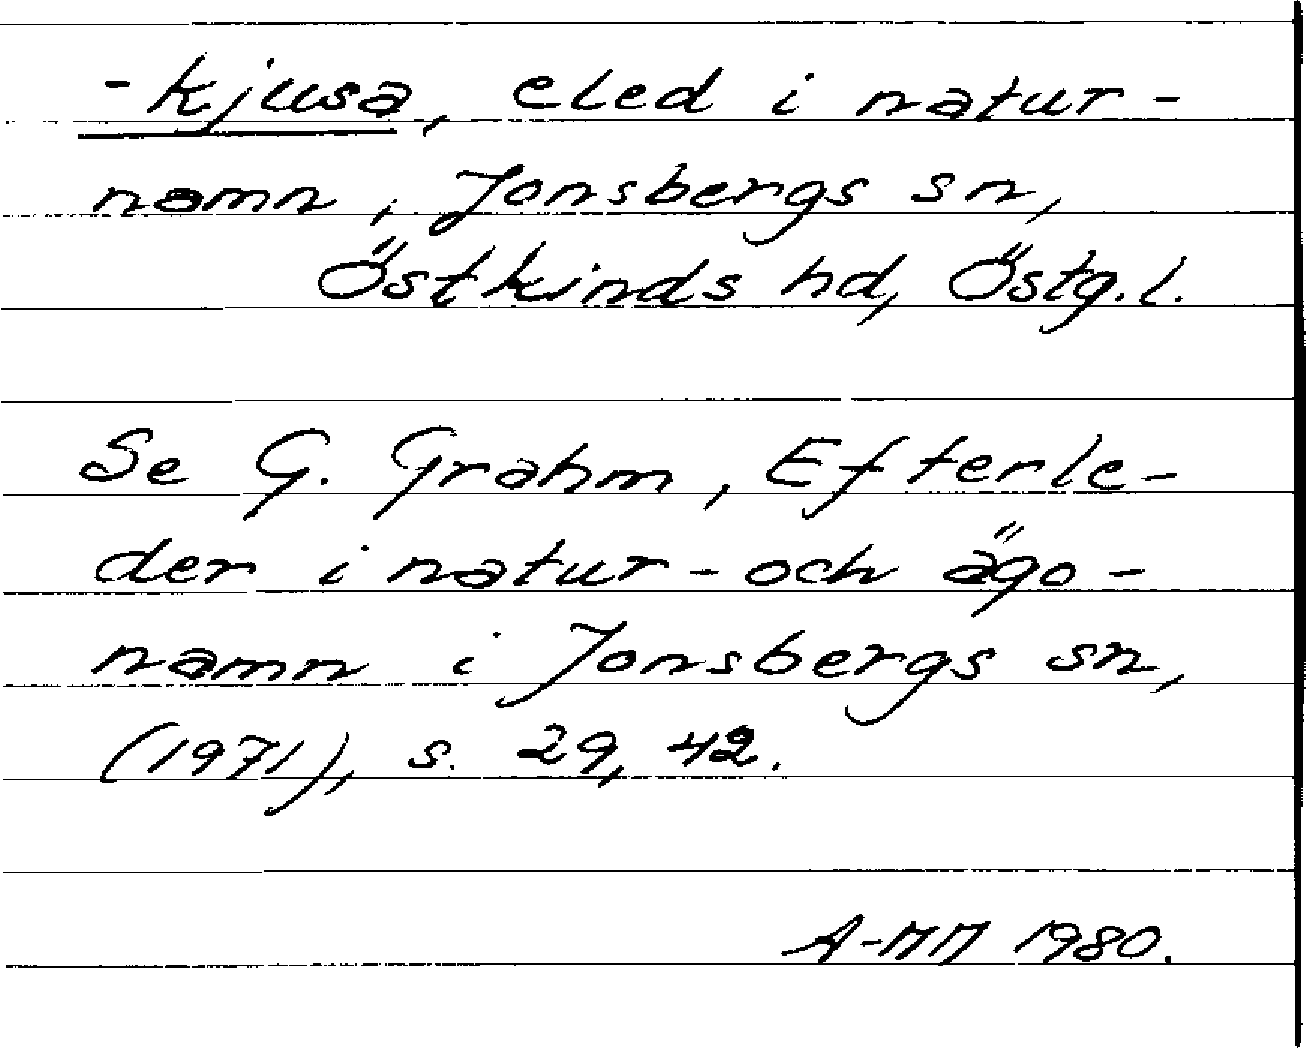 -kjusa, eled i natur-
namn, Jonsbergs sn,
Östkinds hd, Östg. l.
Se G. Grahm, Efterle-
der i natur- och ägo-
namn i Jonsbergs sn,
(1971), s. 29, 42.
A-MM 1980.